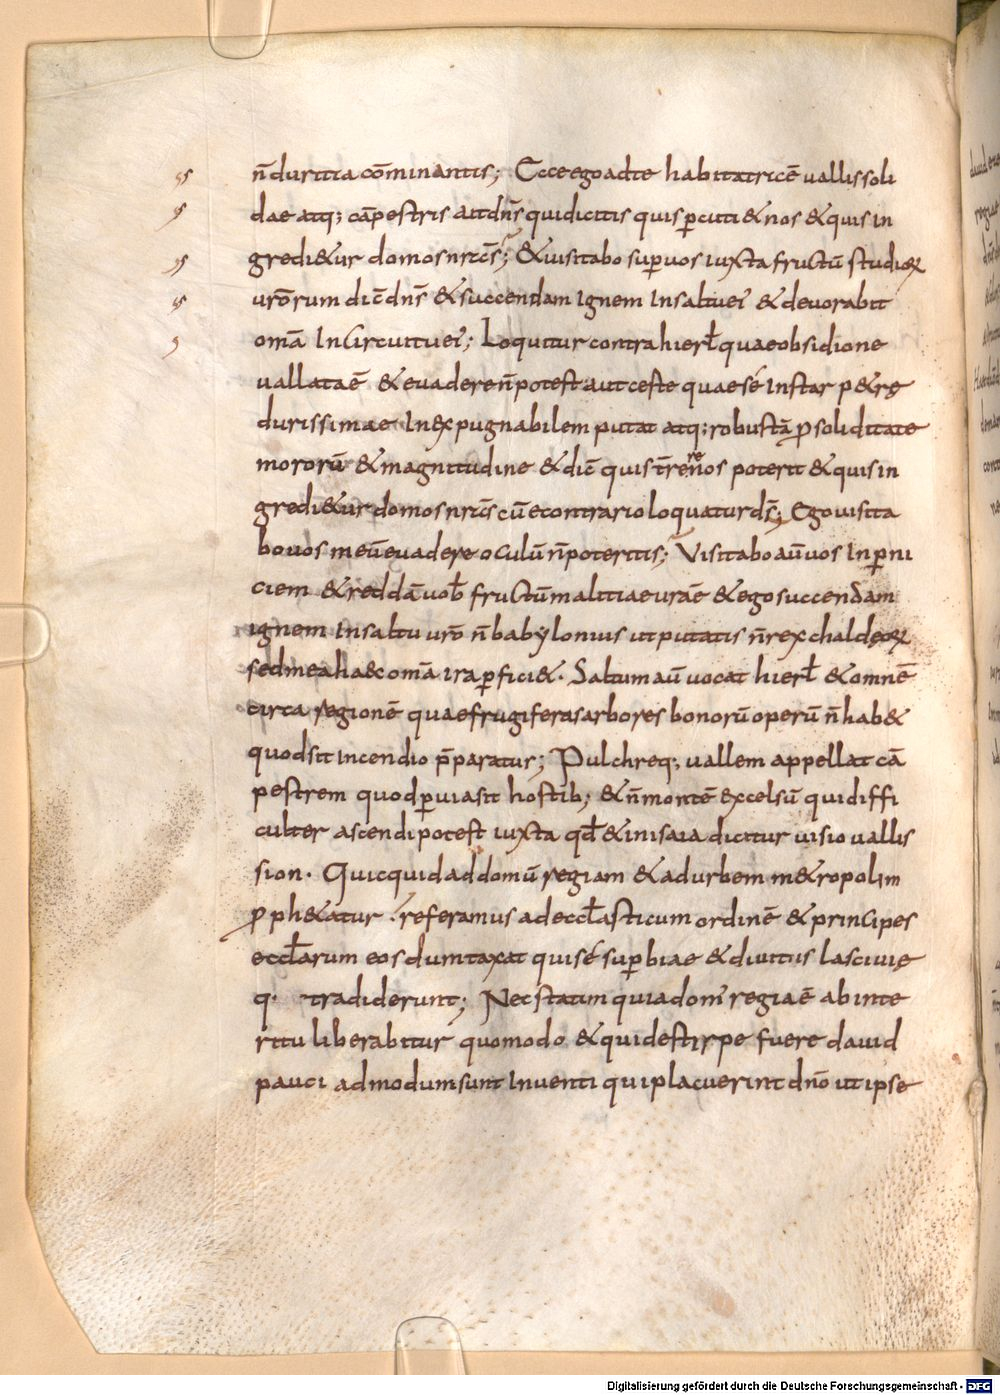 n̄ duritia com̄inantis; Ecce ego ad te habitatricē vallis soli
dae atq; cāpestris ait dn̄s qui dicitis quis p̱cuti& nos & quis in
gredi&ur domos nr̄as; & visitabo sup̱ vos iuxta fructū studioꝝ
vr̄orum dic̄ dn̄s & succendam ignem in saltu ei' & devorabit
om̄a in circuitu ei'; Loquitur contra hierł quae obsidione
vallata ē & evadere n̄ potest aut certe quae sé instar p&rę
durissimae inexpugnabilem putat atq; robustā ꝓ soliditate
mororū & magnitudine & dic̄ quis t̄reńos poterit & quis in
re
gredi&ur domos nr̄as cū e contrario loquatur ds̄; Ego visita
bo vos meū evadere oculū n̄ poteritis; Visitabo aū vos in p̱ni
ciem & reddā vob̄ fructum malitiae vr̄ae & ego succendam
ignem in saltu vr̄o n̄ babylonius ut putatis n̄ rex chaldeoꝝ
sed mea haec om̄a ira p̱fici&. Saltum aū vocat hierł & omnē
circa regionē quae frugiferas arbores bonorū operū n̄ hab&
quod sit incendio p̄paratur; Pulchreq; vallem appellat cā
pestrem quod p̱via sit hostib; & n̄ montē excelsū qui diffi
culter ascendi potest iuxta qd̄ & in isaia dicitur visio vallis
sion. Quicquid ad domū regiam & ad urbem m&ropolim
ꝓph&atur referamus ad eccłasticum ordinē & principes
eccłarum eos dumtaxat qui sé sup̱biae & divitiis lascivię
q. tradiderunt; Nec statim quia dom' regia ē ab inte
ritu liberabitur quomodo & qui de stirpe fuere david
pauci admodum sunt inventi qui placuerint dn̄o ut ipse
Digitalisierung gefördert durch die Deutsche Forschungsgemeinschaft - DFG